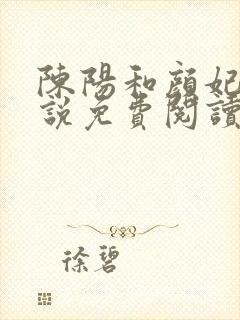 陳陽和顏妃
說免費閱讀
徐碧